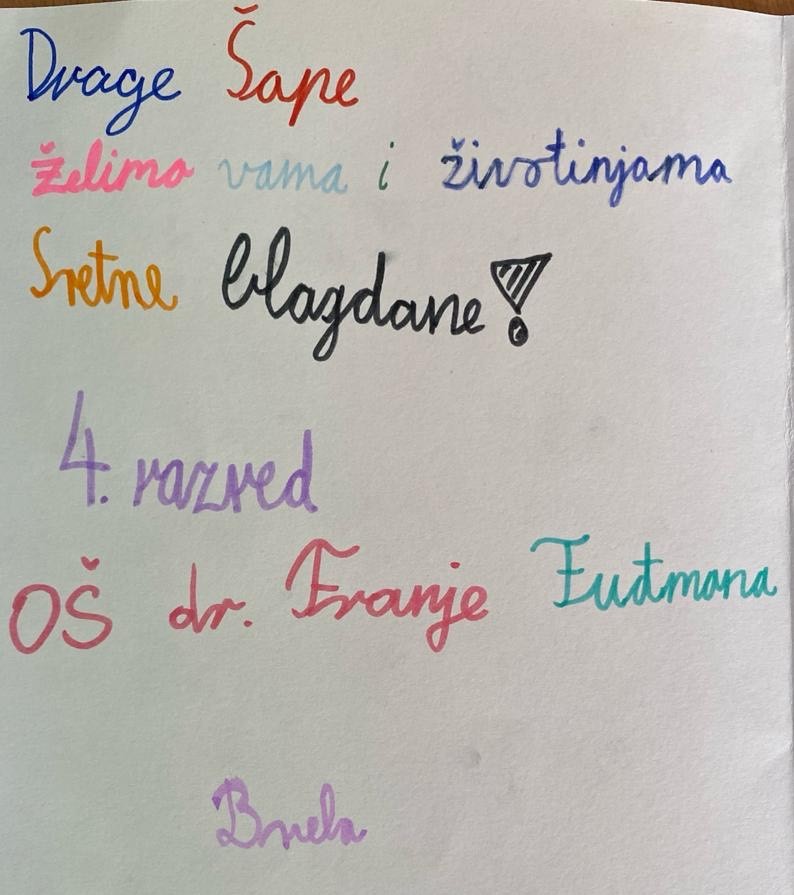 Drage Šape
želimo vama i životinjama
Sretne blagdane!
4. razred
OŠ dr. Franje Tuđmana
Brela